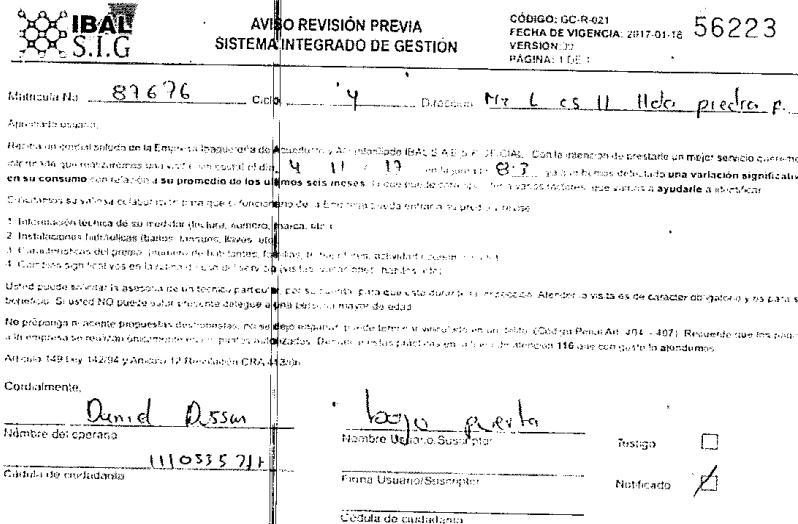 IBAL
S.I.G
AVISO REVISIÓN PREVIA
SISTEMA INTEGRADO DE GESTIÓN
CÓDIGO: GC-R-021
FECHA DE VIGENCIA: 2017-01-16
VERSION:
PÁGINA: 1 DE 1
56223
Matricula No 87676 Ciclo 4 Dirección Mz L cs 11 Hda piedra P.
Apreciado usuario,
Reciba un cordial saludo de la Empresa Ibaguereña de Acueducto y Alcantarillado IBAL S.A E.S.P OFICIAL. Con la intención de prestarle un mejor servicio queremos
informarle que realizaremos una visita sin costo el día 4 11 17 en la jornada 8-3 ya que hemos detectado una variación significativ
en su consumo con relación a su promedio de los últimos seis meses, lo que puede corresponder a varios factores, que vamos a ayudarle a identificar
Solicitamos su valiosa colaboración para que el funcionario de la Empresa pueda entrar a su predio y revise
1. Información técnica de su medidor (lectura, numero, marca, etc.)
2. Instalaciones hidráulicas (baños, tanques, llaves, etc)
3. Características del predio (numero de habitantes, familias,
4. Cambios significativos en la rutina de uso del servicio (visitas, vacaciones, etc)
Usted puede solicitar la asesoria de un técnico particular, por su cuenta, para que esté durante la inspección. Atender la visita es de carácter obligatorio y es para s
beneficio. Si usted NO puede estar presente delegue a una persona mayor de edad
No proponga ni acepte propuestas deshonestas, no se deje engañar, puede terminar vinculado en un delito. (Código Penal Art. 404 - 407). Recuerde que los pago
a la empresa se realizan únicamente en los puntos autorizados. Denuncie estas prácticas en la línea de atención 116 que con gusto lo atendemos
Artículo 149 Ley 142/94 y Artículo 12 Resolución CRA 413/06
Cordialmente,
bajo puerta
Nombre del operario
Nombre Usuario/Suscriptor
Testigo
Cédula de ciudadanía
Firma Usuario/Suscriptor
Notificado
Cédula de ciudadanía